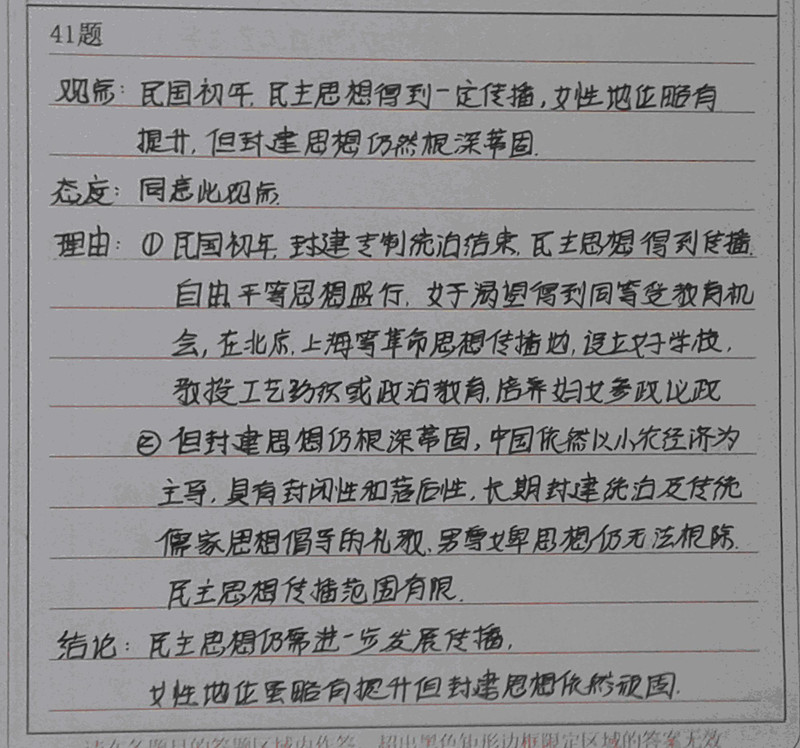 41题
观点：民国初年，民主思想得到一定传播，女性地位略有
提升，但封建思想仍然根深蒂固.
态度：同意此观点.
理由：①民国初年，封建专制统治结束，民主思想得到传播.
自由平等思想盛行，女子渴望得到同等受教育机
会，在北京、上海等革命思想传播地，设立女子学校，
教授工艺纺织或政治教育，培养妇女参政议政
②但封建思想仍根深蒂固，中国依然以小农经济为
主导，具有封闭性和落后性，长期封建统治及传统
儒家思想倡导的礼教、男尊女卑思想仍无法根除.
民主思想传播范围有限.
结论：民主思想仍需进一步发展传播，
女性地位虽略有提升但封建思想依然顽固.
请在各题目的答题区域内作答，超出黑色矩形边框限定区域的答案无效